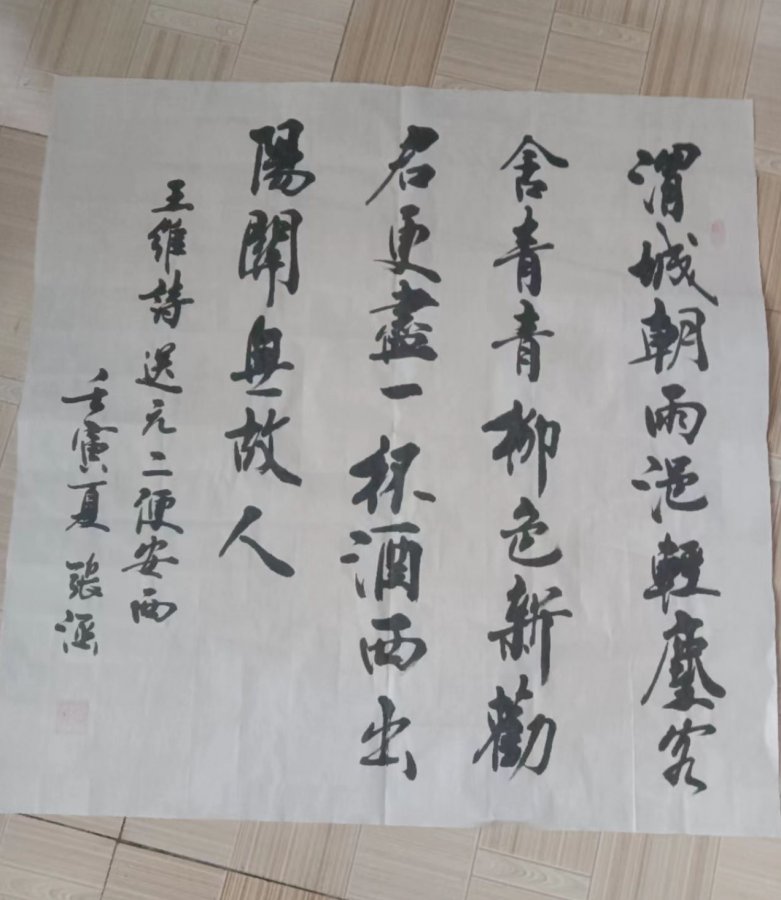 渭城朝雨浥輕塵客
舍青青柳色新勸
君更盡一杯酒西出
陽關無故人
王維詩送元二使安西
壬寅夏 張